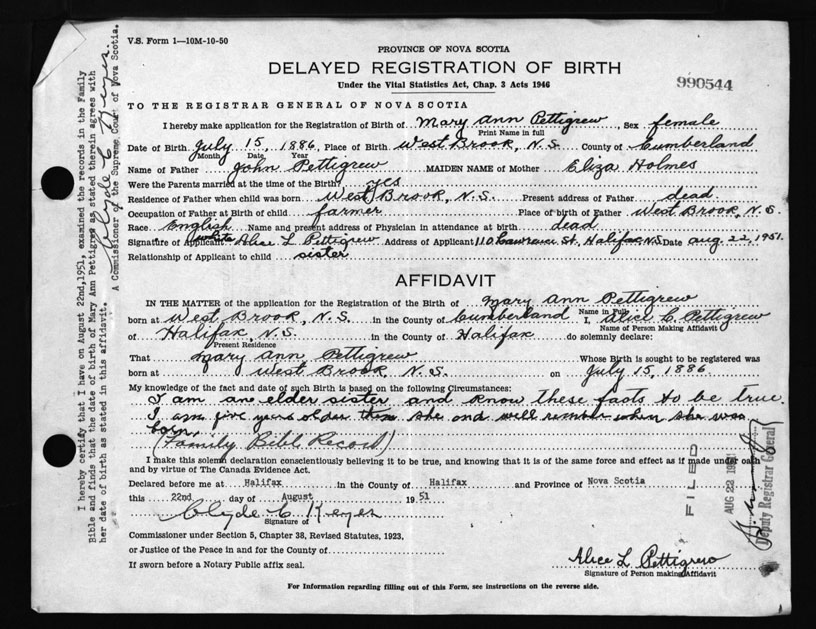 V.S. Form 1—10M-10-50
PROVINCE OF NOVA SCOTIA
DELAYED REGISTRATION OF BIRTH
Under the Vital Statistics Act, Chap. 3 Acts 1946
990544
TO THE REGISTRAR GENERAL OF NOVA SCOTIA
I hereby make application for the Registration of Birth of Mary Ann Pettigrew, Sex female
Print Name in full
Date of Birth July 15, 1886, Place of Birth West Brook, N.S. County of Cumberland
Month Date Year
Name of Father John Pettigrew MAIDEN NAME of Mother Eliza Holmes
Were the Parents married at the time of the Birth? yes
Residence of Father when child was born West Brook, N.S. Present address of Father dead
Occupation of Father at Birth of child farmer Place of birth of Father West Brook, N.S.
Race English Name and present address of Physician in attendance at birth dead
white
Signature of Applicant Alice L Pettigrew Address of Applicant 110 Lawrence St. Halifax N.S Date aug. 22, 1951.
Relationship of Applicant to child sister
AFFIDAVIT
IN THE MATTER of the application for the Registration of the Birth of Mary Ann Pettigrew
Name in Full
born at West Brook, N.S. in the County of Cumberland I, Alice L. Pettigrew
Name of Person Making Affidavit
of Halifax, N.S. in the County of Halifax do solemnly declare:
Present Residence
That Mary Ann Pettigrew Whose Birth is sought to be registered was
born at West Brook, N.S. on July 15, 1886
My knowledge of the fact and date of such Birth is based on the following Circumstances:
I am an elder sister and know these facts to be true.
I am five years older than she and well remember when she was
born.
(Family Bibl Record)
I make this solemn declaration conscientiously believing it to be true, and knowing that it is of the same force and effect as if made under oath
and by virtue of The Canada Evidence Act.
Declared before me at Halifax in the County of Halifax and Province of Nova Scotia
this 22nd day of August 1951
Clyde C Keyes
Signature of
Commissioner under Section 5, Chapter 38, Revised Statutes, 1923,
or Justice of the Peace in and for the County of
If sworn before a Notary Public affix seal.
Alice L Pettigrew
Signature of Person making Affidavit
For Information regarding filling out of this Form, see instructions on the reverse side.
I hereby certify that I have on August 22nd, 1951, examined the records in the Family
Bible and finds that the date of birth of Mary Ann Pettigrew as stated therein agrees with
her date of birth as stated in this affidavit.
Clyde C Keyes.
A Commissioner of the Supreme Court of Nova Scotia.
FILED
AUG 22 1951
Deputy Registrar General